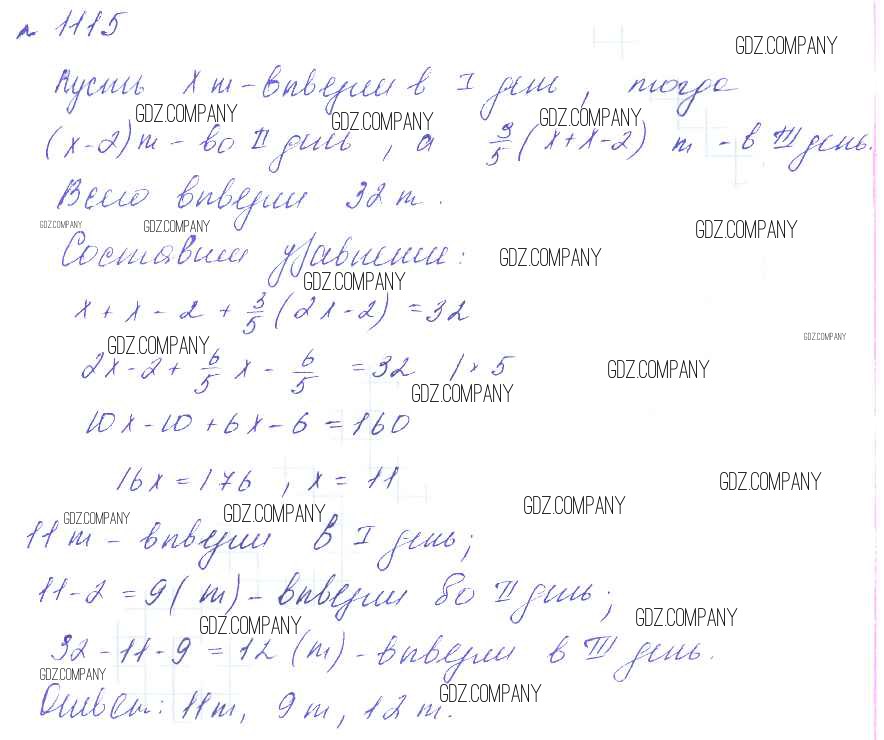 № 1115
GDZ.COMPANY
Пусть x т - отвезли в I день, тогда
GDZ.COMPANY GDZ.COMPANY GDZ.COMPANY
(x-2) т - во II день, а 3/5 (x+x-2) т - в III день.
Всего отвезли 32 т.
GDZ.COMPANY GDZ.COMPANY GDZ.COMPANY
Составим уравнение: GDZ.COMPANY
GDZ.COMPANY
x + x - 2 + 3/5 (2x-2) = 32
GDZ.COMPANY GDZ.COMPANY
2x-2+ 6/5 x - 6/5 = 32 | × 5 GDZ.COMPANY
GDZ.COMPANY
10x-10+6x-6=160
16x=176, x=11 GDZ.COMPANY
GDZ.COMPANY GDZ.COMPANY GDZ.COMPANY
11 т - отвезли в I день;
11-2=9 (т) - отвезли во II день;
GDZ.COMPANY GDZ.COMPANY
32-11-9=12 (т) - отвезли в III день.
GDZ.COMPANY GDZ.COMPANY
Ответ: 11т, 9т, 12т.